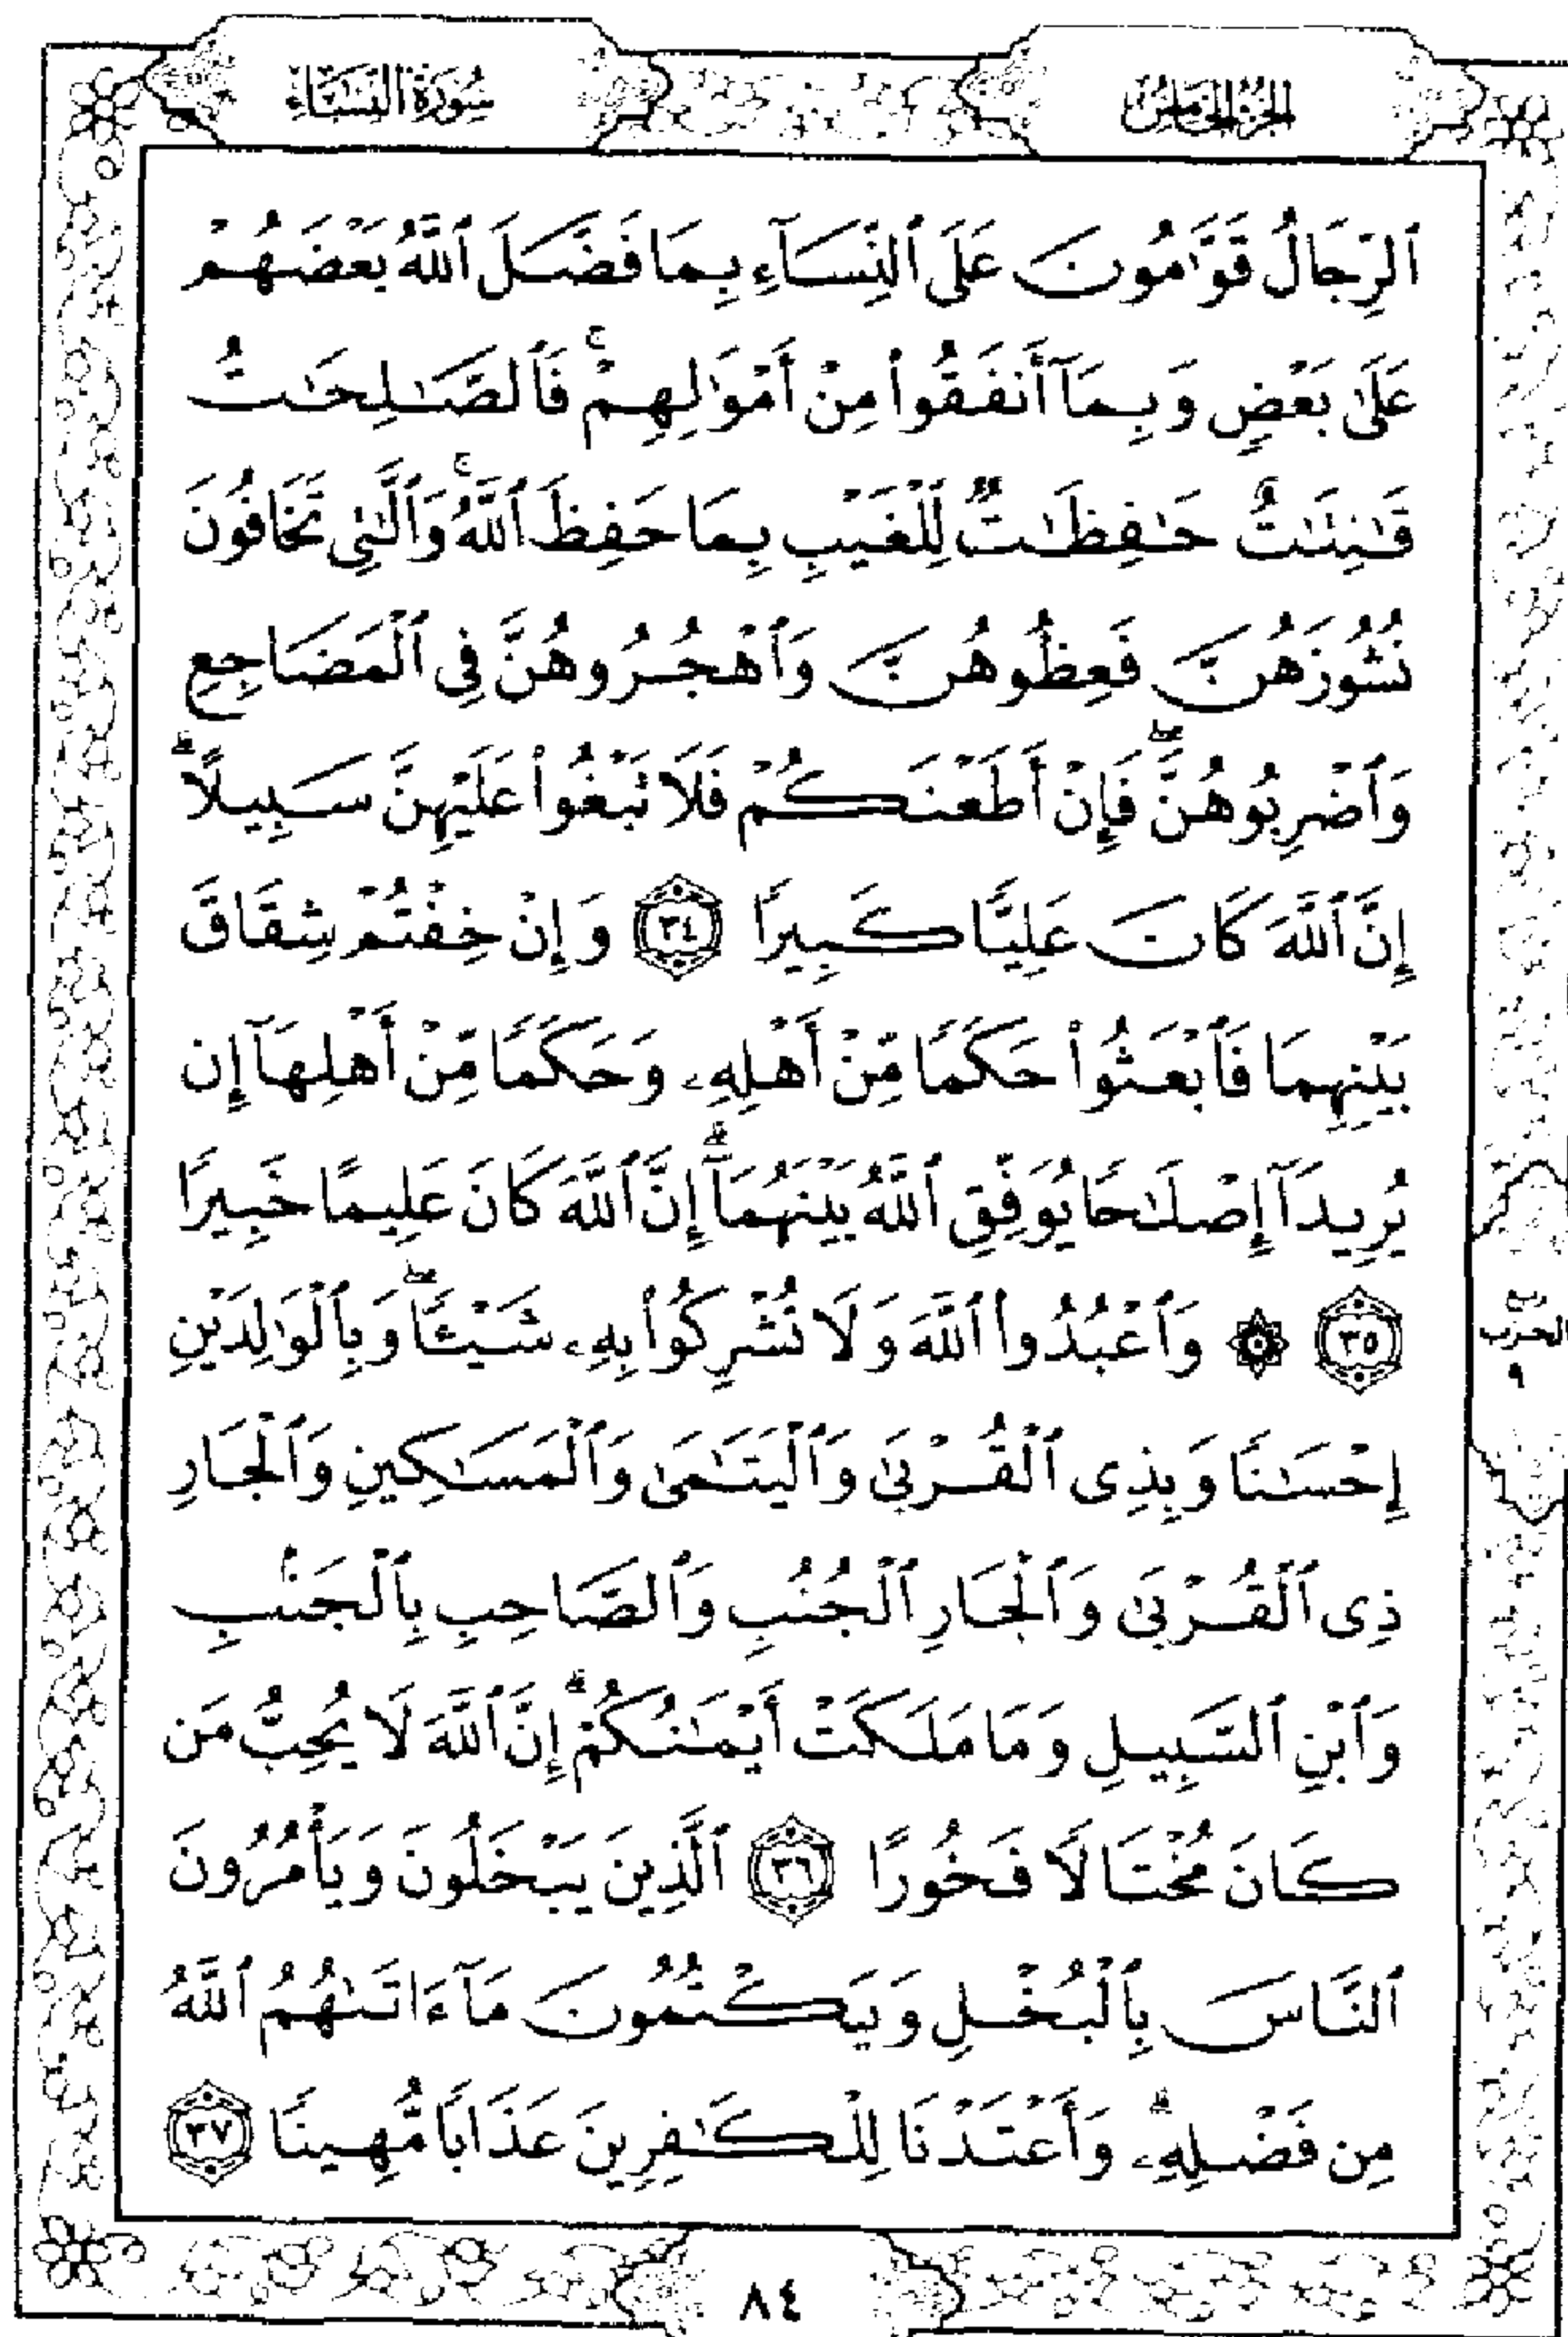 الجزء الخامس
سورة النساء
ٱلرِّجَالُ قَوَّٰمُونَ عَلَى ٱلنِّسَآءِ بِمَا فَضَّلَ ٱللَّهُ بَعْضَهُمْ
عَلَىٰ بَعْضٍ وَبِمَآ أَنفَقُوا۟ مِنْ أَمْوَٰلِهِمْ ۚ فَٱلصَّٰلِحَٰتُ
قَٰنِتَٰتٌ حَٰفِظَٰتٌ لِّلْغَيْبِ بِمَا حَفِظَ ٱللَّهُ ۚ وَٱلَّٰتِى تَخَافُونَ
نُشُوزَهُنَّ فَعِظُوهُنَّ وَٱهْجُرُوهُنَّ فِى ٱلْمَضَاجِعِ
وَٱضْرِبُوهُنَّ ۖ فَإِنْ أَطَعْنَكُمْ فَلَا تَبْغُوا۟ عَلَيْهِنَّ سَبِيلًا ۗ
إِنَّ ٱللَّهَ كَانَ عَلِيًّا كَبِيرًا ٣٤ وَإِنْ خِفْتُمْ شِقَاقَ
بَيْنِهِمَا فَٱبْعَثُوا۟ حَكَمًا مِّنْ أَهْلِهِۦ وَحَكَمًا مِّنْ أَهْلِهَآ إِن
يُرِيدَآ إِصْلَٰحًا يُوَفِّقِ ٱللَّهُ بَيْنَهُمَآ ۗ إِنَّ ٱللَّهَ كَانَ عَلِيمًا خَبِيرًا
٣٥ ۞ وَٱعْبُدُوا۟ ٱللَّهَ وَلَا تُشْرِكُوا۟ بِهِۦ شَيْـًٔا ۖ وَبِٱلْوَٰلِدَيْنِ
إِحْسَٰنًا وَبِذِى ٱلْقُرْبَىٰ وَٱلْيَتَٰمَىٰ وَٱلْمَسَٰكِينِ وَٱلْجَارِ
ذِى ٱلْقُرْبَىٰ وَٱلْجَارِ ٱلْجُنُبِ وَٱلصَّاحِبِ بِٱلْجَنۢبِ
وَٱبْنِ ٱلسَّبِيلِ وَمَا مَلَكَتْ أَيْمَٰنُكُمْ ۗ إِنَّ ٱللَّهَ لَا يُحِبُّ مَن
كَانَ مُخْتَالًا فَخُورًا ٣٦ ٱلَّذِينَ يَبْخَلُونَ وَيَأْمُرُونَ
ٱلنَّاسَ بِٱلْبُخْلِ وَيَكْتُمُونَ مَآ ءَاتَىٰهُمُ ٱللَّهُ
مِن فَضْلِهِۦ ۗ وَأَعْتَدْنَا لِلْكَٰفِرِينَ عَذَابًا مُّهِينًا ٣٧
الحزب
٩
٨٤